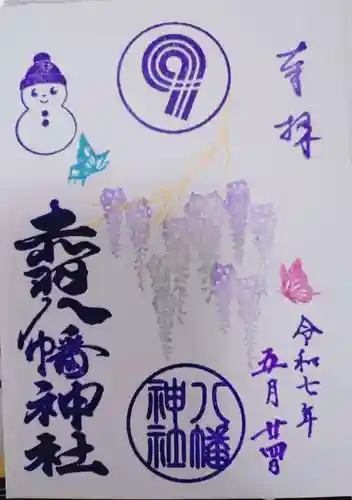 奉拝
令和七年
五月廿四日
八幡
神社
赤羽八幡神社